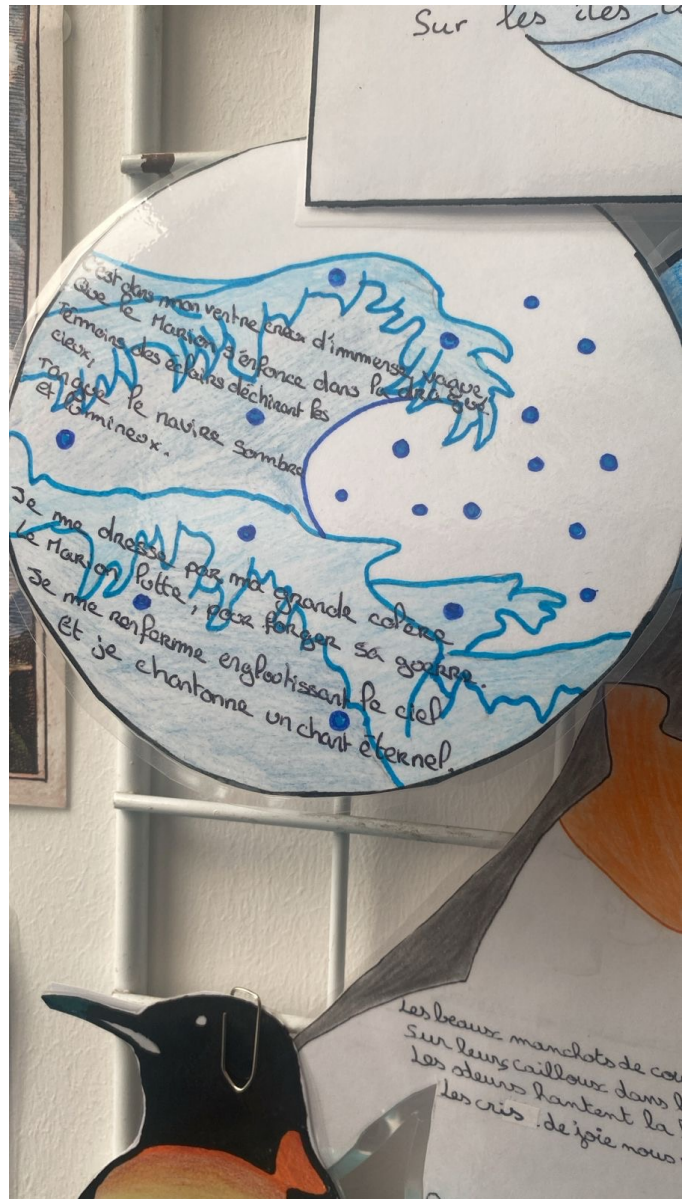 Sur les îles
C'est dans mon ventre creux d'immense vague,
Que le Marion s'enfonce dans la drague
Témoins des éclairs déchirant les
cieux,
Tangue le navire sombre
et lumineux.
Je me dresse par ma grande colère
Le Marion lutte, pour forger sa guerre.
Je me renferme engloutissant le ciel
Et je chantonne un chant éternel.
Les beaux manchots de
Sur leurs cailloux dans
Les odeurs hantent la
Les cris de joie nous